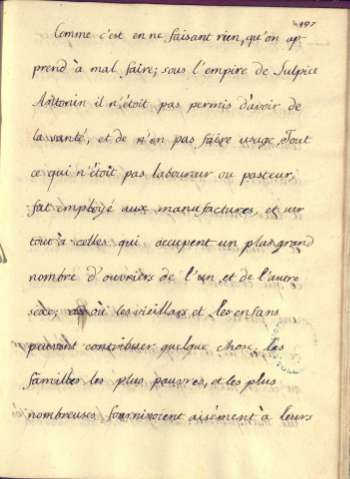 497
Comme c'est en ne faisant rien, qu'on ap-
prend à mal faire; sous l'empire de Sulpice
Antonin il n'étoit pas permis d'avoir de
la santé, et de n'en pas faire usage. Tout
ce qui n'étoit pas laboureur ou pasteur,
fut employé aux manufactures, et sur
tout à celles qui occupent un plus grand
nombre d'ouvriers de l'un et de l'autre
sexe; où les vieillars et les enfans
peuvent contribuer quelque chose, les
familles les plus pauvres, et les plus
nombreuses fournissoient aisément à leurs